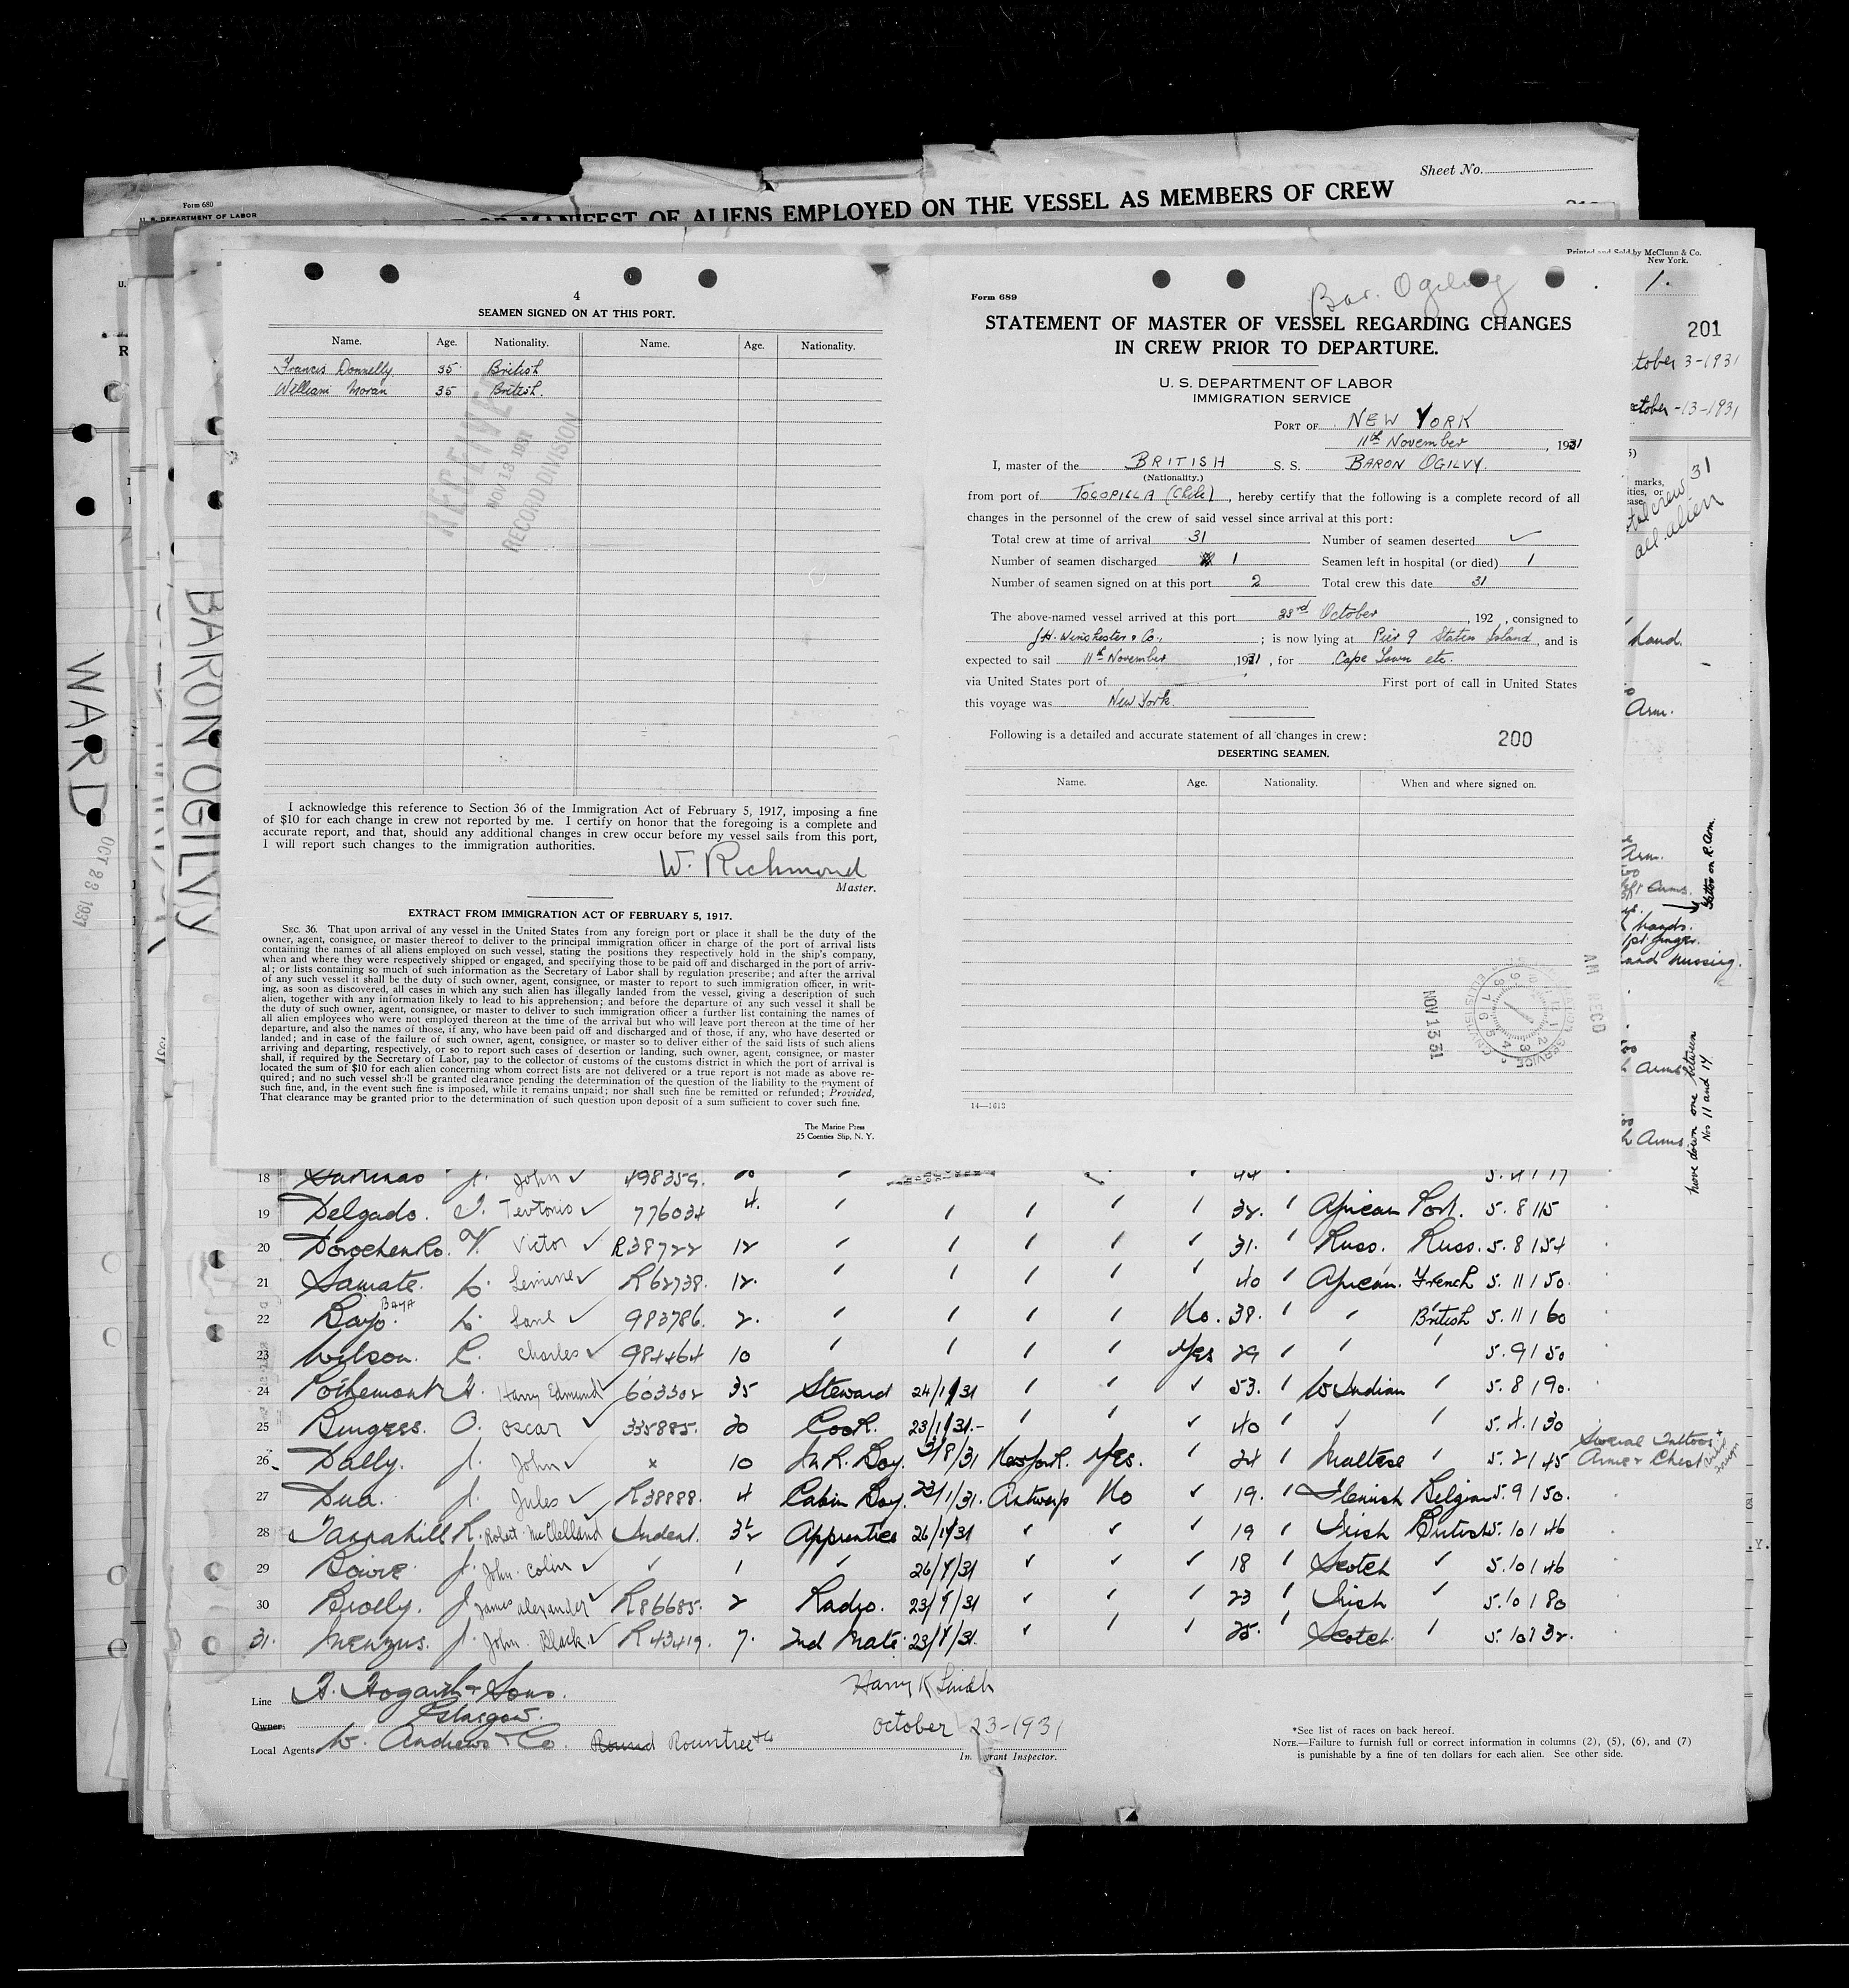 Sheet No.
Form 680
U. S. DEPARTMENT OF LABOR
MANIFEST OF ALIENS EMPLOYED ON THE VESSEL AS MEMBERS OF CREW
Printed and Sold by McClunn & Co.
New York.
1.
201
October 3-1931
October-13-1931
marks,
total crew 31
all alien
hand.
Arm.
Arm.
Arms.
hands.
finger.
and missing.
Tattoo on R. Arm.
Arms
Arms
move down one between
Nos 11 and 14
WARD
OCT 23 1931
BARON OGILVY
4
SEAMEN SIGNED ON AT THIS PORT.
Name. Age. Nationality. Name. Age. Nationality.
Francis Donnelly 35 British
William Moran 35 British.
RECEIVED
NOV 13 1931
RECORD DIVISION
I acknowledge this reference to Section 36 of the Immigration Act of February 5, 1917, imposing a fine
of $10 for each change in crew not reported by me. I certify on honor that the foregoing is a complete and
accurate report, and that, should any additional changes in crew occur before my vessel sails from this port,
I will report such changes to the immigration authorities.
W. Richmond
Master.
EXTRACT FROM IMMIGRATION ACT OF FEBRUARY 5, 1917.
SEC. 36. That upon arrival of any vessel in the United States from any foreign port or place it shall be the duty of the
owner, agent, consignee, or master thereof to deliver to the principal immigration officer in charge of the port of arrival lists
containing the names of all aliens employed on such vessel, stating the positions they respectively hold in the ship's company,
when and where they were respectively shipped or engaged, and specifying those to be paid off and discharged in the port of arriv-
al; or lists containing so much of such information as the Secretary of Labor shall by regulation prescribe; and after the arrival
of any such vessel it shall be the duty of such owner, agent, consignee, or master to report to such immigration officer, in writ-
ing, as soon as discovered, all cases in which any such alien has illegally landed from the vessel, giving a description of such
alien, together with any information likely to lead to his apprehension; and before the departure of any such vessel it shall be
the duty of such owner, agent, consignee, or master to deliver to such immigration officer a further list containing the names of
all alien employees who were not employed thereon at the time of the arrival but who will leave port thereon at the time of her
departure, and also the names of those, if any, who have been paid off and discharged and of those, if any, who have deserted or
landed; and in case of the failure of such owner, agent, consignee, or master so to deliver either of the said lists of such aliens
arriving and departing, respectively, or so to report such cases of desertion or landing, such owner, agent, consignee, or master
shall, if required by the Secretary of Labor, pay to the collector of customs of the customs district in which the port of arrival is
located the sum of $10 for each alien concerning whom correct lists are not delivered or a true report is not made as above re-
quired; and no such vessel shall be granted clearance pending the determination of the question of the liability to the payment of
such fine, and, in the event such fine is imposed, while it remains unpaid; nor shall such fine be remitted or refunded; Provided,
That clearance may be granted prior to the determination of such question upon deposit of a sum sufficient to cover such fine.
The Marine Press
25 Coenties Slip, N. Y.
Form 689
Bar. Ogilvy
STATEMENT OF MASTER OF VESSEL REGARDING CHANGES
IN CREW PRIOR TO DEPARTURE.
U. S. DEPARTMENT OF LABOR
IMMIGRATION SERVICE
PORT OF NEW YORK
11th November, 1931
I, master of the BRITISH S. S. BARON OGILVY.
(Nationality.)
from port of TOCOPILLA (Chile), hereby certify that the following is a complete record of all
changes in the personnel of the crew of said vessel since arrival at this port:
Total crew at time of arrival 31 Number of seamen deserted ✓
Number of seamen discharged 1 Seamen left in hospital (or died) 1
Number of seamen signed on at this port 2 Total crew this date 31
The above-named vessel arrived at this port 23rd October, 192 , consigned to
J.H. Winchester & Co., ; is now lying at Pier 9 Staten Island, and is
expected to sail 11th November, 1931, for Cape Town etc.
via United States port of First port of call in United States
this voyage was New York.
Following is a detailed and accurate statement of all changes in crew: 200
DESERTING SEAMEN.
Name. Age. Nationality. When and where signed on.
NOV 13 31
14—1613
18 J. John ✓ 498359. 44
19 Delgado. T. Teotonio ✓ 776034 4. 32. African Port. 5. 8 115
20 Dorochenko. V. Victor ✓ R38722 12 31. Russ. Russ. 5. 8 154
21 Samate. L. ✓ R62738. 12. 40 African. French 5. 11 150.
22 Bayo. BAYA L. ✓ 983786. 2. No. 38. British 5. 11 160
23 Wilson. C. Charles ✓ 984464 10 Yes 29 5. 9 150
24 Pothemont H. Harry Edmund ✓ 603302 35 Steward 24/1/31 53. W Indian 5. 8 190.
25 Burgess. O. Oscar ✓ 335885. 20 Cook. 23/1/31.- 40 5. 4. 130
26 Dally. J. John ✓ x 10 M.R. Boy. 3/8/31 New York. Yes. 24 Maltese 5. 2 145 Several Tattoos + Arms + Chest
27 Dua. J. Jules ✓ R38888. 4 Cabin Boy. 23/1/31. Antwerp No 19. Flemish Belgian 5. 9 150.
28 Tannahill R. Robert McClelland Indent. 3½ Apprentice 26/1/31 19 Irish British 5. 10 146
29 Bowie J. John Colin ✓ 1 26/1/31 18 Scotch 5. 10 146
30 Brolly. J. James Alexander ✓ R86685. 2 Radio. 23/1/31 23 Irish 5. 10 180
31. Menzies. J. John Black. ✓ R43419. 7. 2nd Mate. 23/1/31. 25. Scotch. 5. 10 132.
Line H. Hogarth & Sons.
Owners Glasgow.
Local Agents W. Andrews & Co. Rountree & Co
Harry K Smith
October 23-1931
Immigrant Inspector.
*See list of races on back hereof.
NOTE.—Failure to furnish full or correct information in columns (2), (5), (6), and (7)
is punishable by a fine of ten dollars for each alien. See other side.